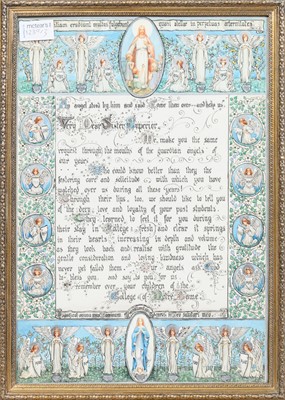 erudiunt multos fulgebunt quasi stellae in perpetuas aeternitates
An angel stood by him and said Come then over and help us.
Very Dear Sister Superior,
We make you the same
request through the mouths of the guardian angels of
our years.
Who could know better than they the
fostering care and solicitude with which you have
watched over us during all these years!
Through their lips, too, we should like to tell you
of the deep love and loyalty of your past students
They learned to feel it for you during
their stay in College; fresh and clear it springs
in their hearts, increasing in depth and volume
as they look back and realise with gratitude the
gentle consideration and loving kindness which has
never yet failed them. angels
to bless you and say to you for us
remember ever your children of the
College of Notre Dame.